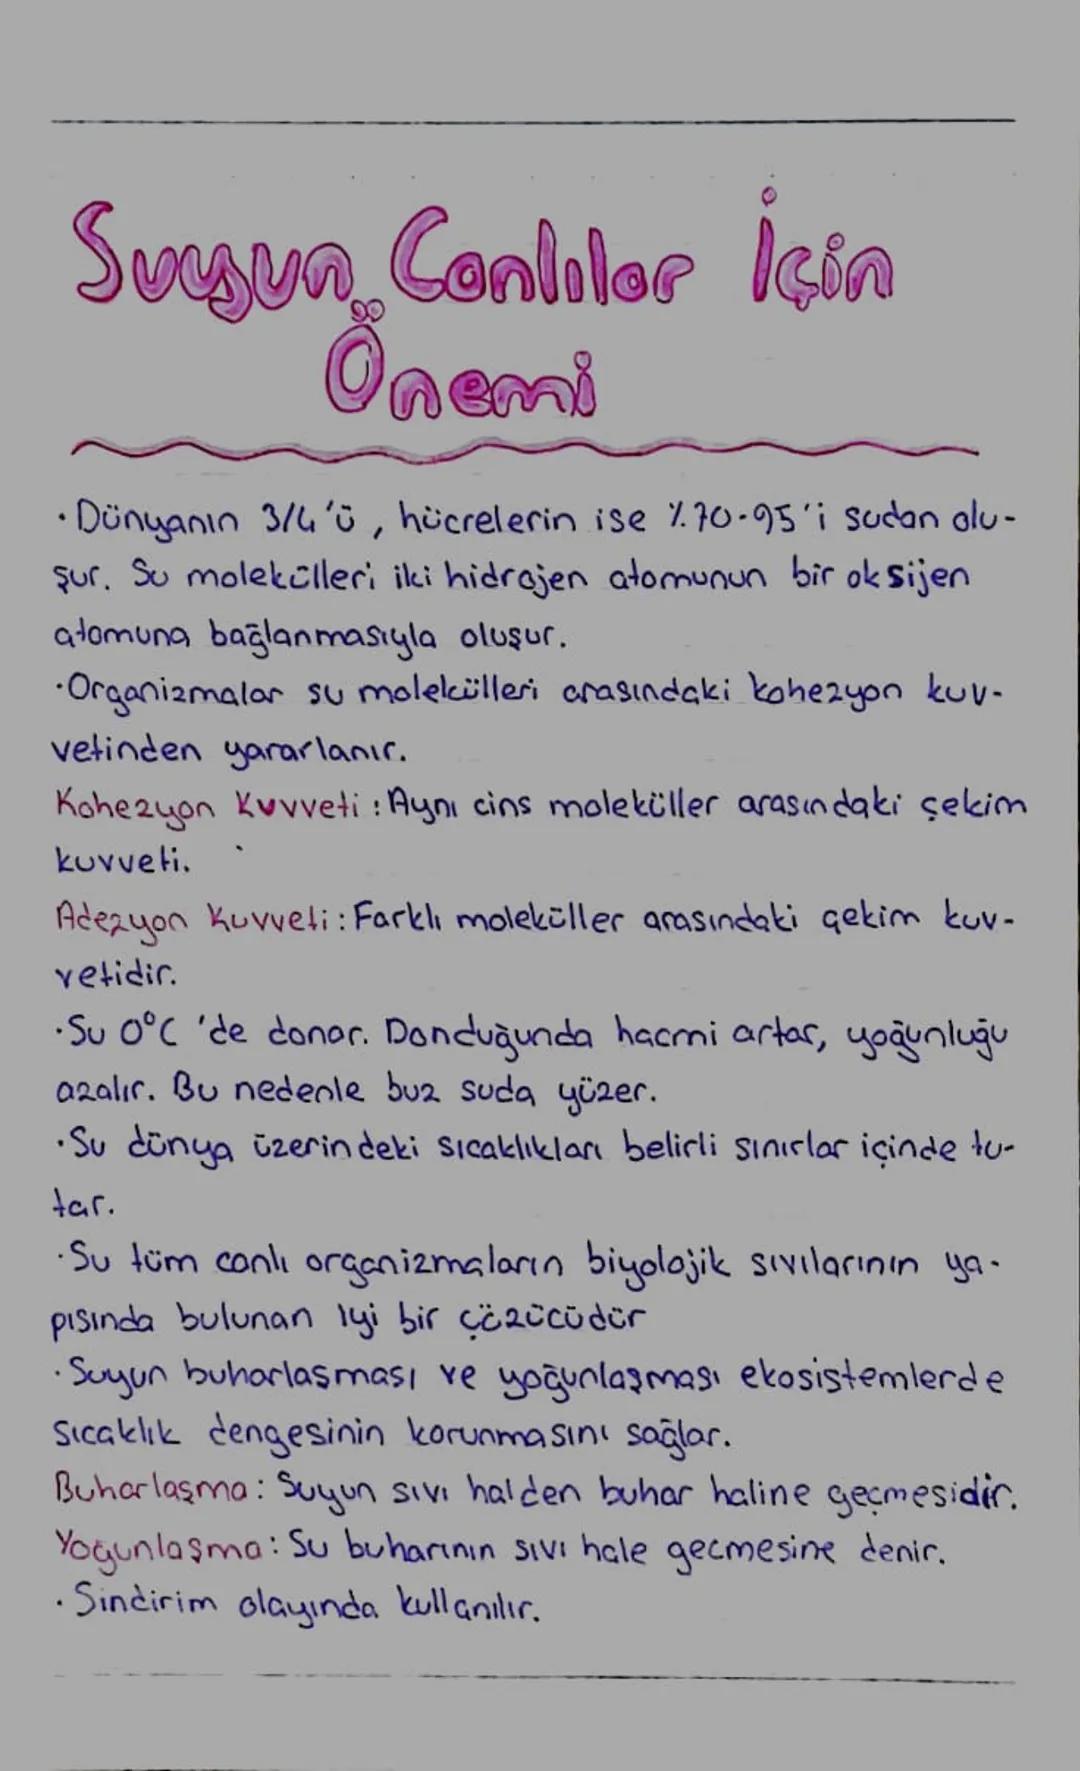 Suyun Canlılar İçin
Önemi
• Dünyanın 3/4'ü, hücrelerin ise %70-95'i sudan olu-
şur. Su molekülleri iki hidrojen atomunun bir oksijen
atomuna bağlanmasıyla oluşur.
• Organizmalar su molekülleri arasındaki kohezyon kuv-
vetinden yararlanır.
Kohezyon Kuvveti: Aynı cins moleküller arasındaki çekim
kuvveti.
Adezyon Kuvveti: Farklı moleküller arasındaki çekim kuv-
vetidir.
• Su 0°C 'de donar. Donduğunda hacmi artar, yoğunluğu
azalır. Bu nedenle buz suda yüzer.
• Su dünya üzerindeki sıcaklıkları belirli sınırlar içinde tu-
tar.
• Su tüm canlı organizmaların biyolojik sıvılarının ya-
pısında bulunan iyi bir çözücüdür
• Suyun buharlaşması ve yoğunlaşması ekosistemlerde
sıcaklık dengesinin korunmasını sağlar.
Buharlaşma: Suyun sıvı halden buhar haline geçmesidir.
Yoğunlaşma: Su buharının sıvı hale gecmesine denir.
• Sindirim olayında kullanılır.